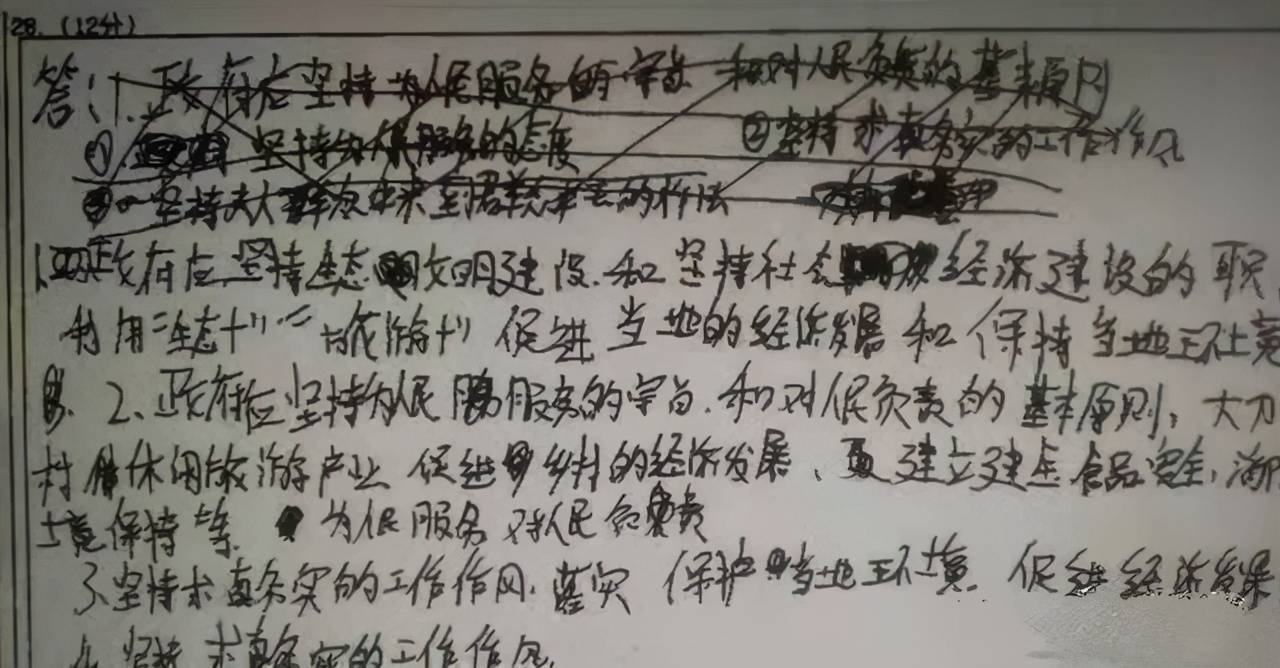 28.(12分)
答:1.政府应坚持为人民服务的宗旨 和对人民负责的基本原则
① 坚持为人民服务的态度 ②坚持求真务实的工作作风
③ 坚持从群众中来到群众中去的
1.政府应坚持生态文明建设.和坚持社会经济建设的职
利用"生态+""旅游+"促进当地的经济发展和保持当地环境
2、政府应坚持为人民服务的宗旨.和对人民负责的基本原则,大力
村休闲旅游产业 促进乡村的经济发展、建立健全食品安全,
境保持等. 为人民服务 对人民负责
3、坚持求真务实的工作作风.落实 保护当地环境 促进经济发展
4.坚持求真务实的工作作风.